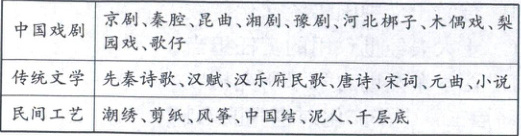 中国戏剧 京剧、秦腔、昆曲、湘剧、豫剧、河北梆子、木偶戏、梨
园戏、歌仔
传统文学 先秦诗歌、汉赋、汉乐府民歌、唐诗、宋词、元曲、小说
民间工艺 潮绣、剪纸、风筝、中国结、泥人、千层底